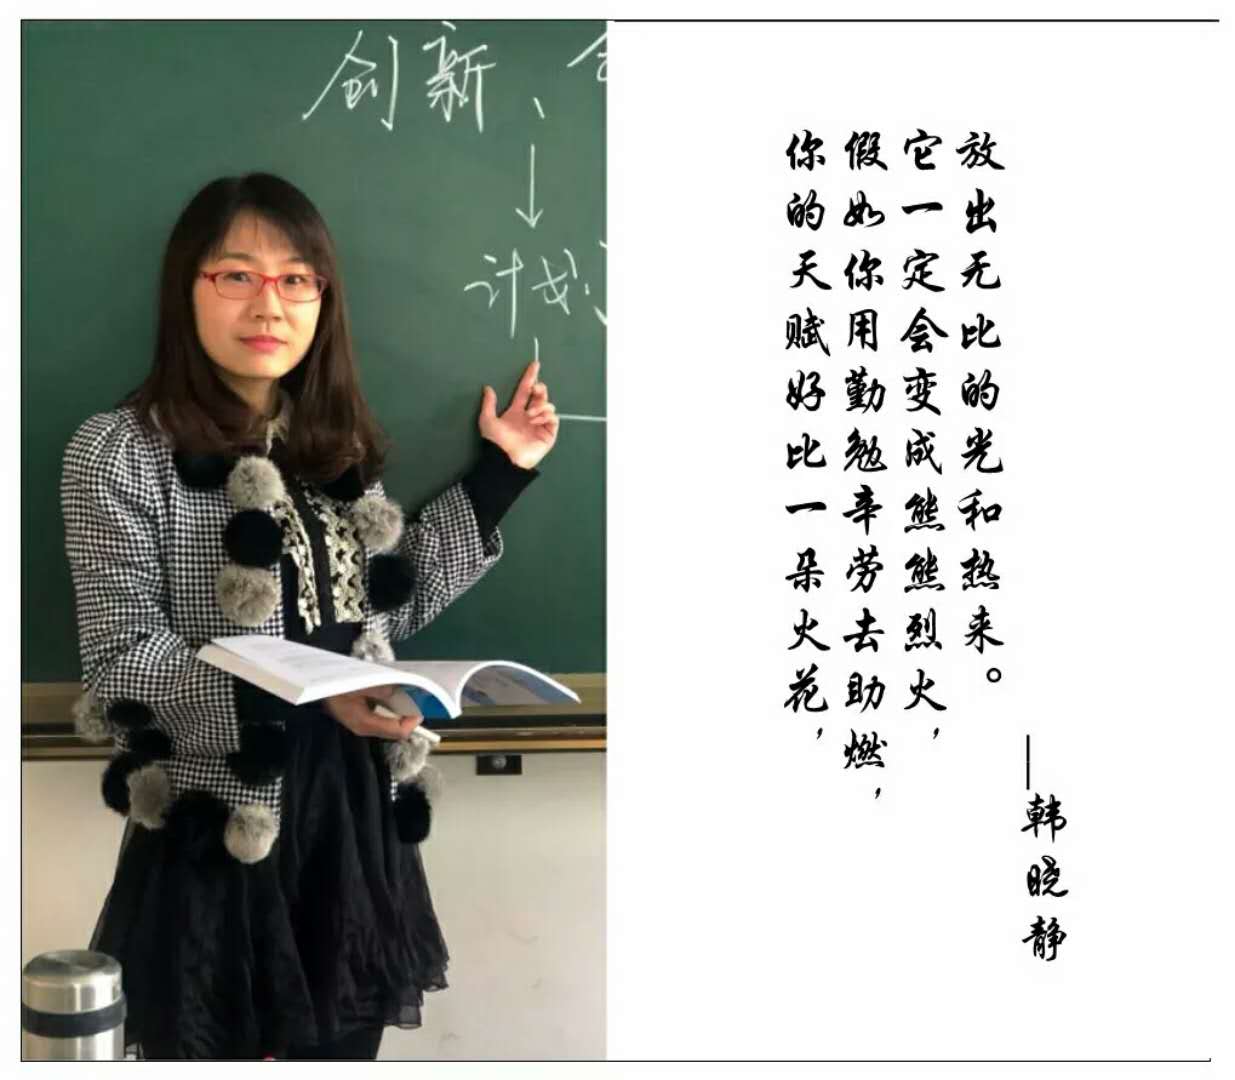 创新、
计划
你的天赋好比一朵火花，
假如你用勤勉辛劳去助燃，
它一定会变成熊熊烈火，
放出无比的光和热来。
—韩晓静